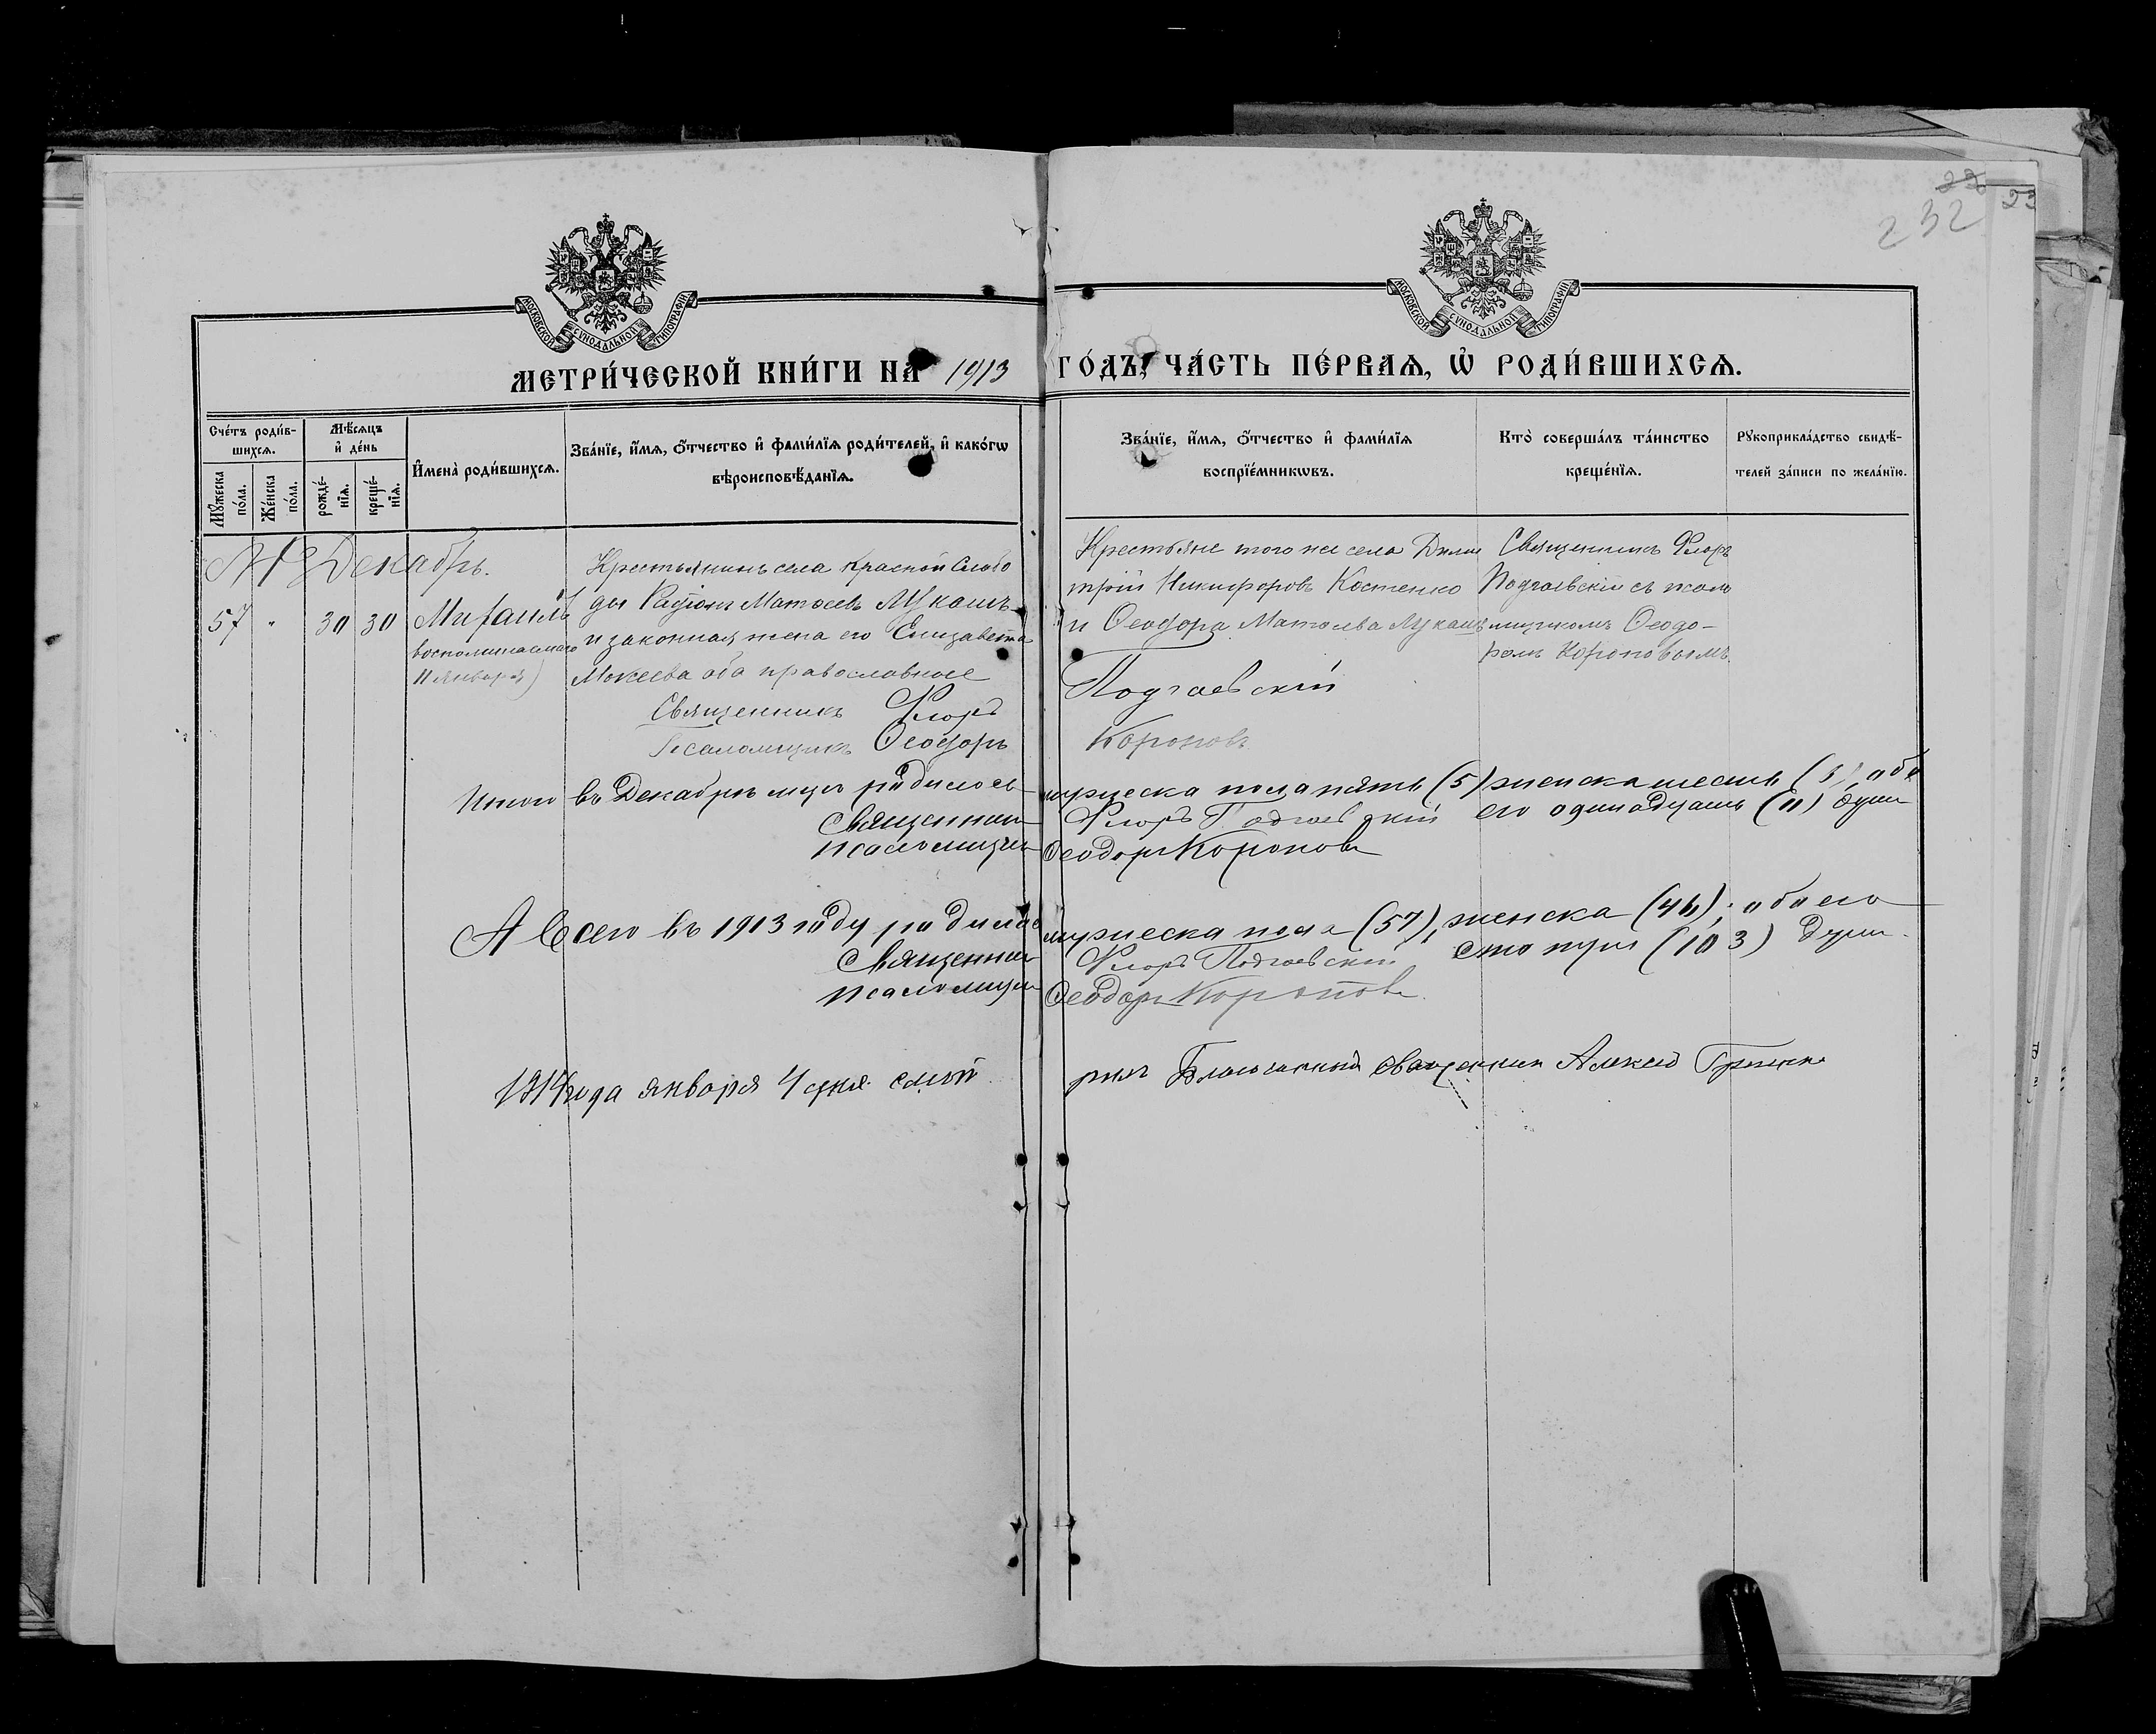 22 23
232
МОСКОВСКОЙ СѴНОДАЛЬНОЙ ТИПОГРАФІИ
МОСКОВСКОЙ СѴНОДАЛЬНОЙ ТИПОГРАФІИ
МЕТРИ́ЧЕСКОЙ КНИ́ГИ НА 1913 ГО́ДЪ, ЧА́СТЬ ПЕ́РВАѦ, Ѡ҆ РОДИ́ВШИХСѦ.
Сче́тъ роди́в-
шихсѧ.
Мꙋ́жеска по́ла.
Же́нска по́ла.
Мѣ́сѧцъ
и҆ де́нь
рожде́-
нїѧ.
креще́-
нїѧ.
И҆мена̀ роди́вшихсѧ.
Зва́нїе, и҆́мѧ, ѻ҆́тчество и҆ фами́лїѧ роди́телей, и҆ како́гѡ
вѣроисповѣ́данїѧ.
Зва́нїе, и҆́мѧ, ѻ҆́тчество и҆ фами́лїѧ
воспрїе́мникѡвъ.
Кто̀ соверша́лъ та́инство
креще́нїѧ.
Рꙋкоприкла́дство свидѣ́-
телей за́писи по жела́нїю.
Декабрь.
57 " 30 30
Михаилъ
воспоминаемаго
11 января)
Крестьянинъ села Красной Слобо
ды Радіонъ Матѳеевъ Лукашъ
и законная жена его Елизавета
Мокеева оба православные
Крестьяне того же села Дими
трій Никифоровъ Костенко
и Ѳеодора Матѳеева Лукашъ
Священникъ Флоръ
Подгаевскій съ псало
мщикомъ Ѳеодо-
ромъ Короповымъ.
Священникъ Флоръ Подгаевскій
Псаломщикъ Ѳеодоръ Короповъ
Итого въ Декабрѣ мцѣ родилось мужеска пола пять (5) женска шесть обо
его одинадцать (11) душъ
Священник Флоръ Подгаевскій
Псаломщик Ѳеодоръ Короповъ
А всего въ 1913 году родилось мужеска пола (57), женска (46); обоего
сто три (103) душъ.
Священник Флоръ Подгаевскій
Псаломщик Ѳеодоръ Короповъ.
1914 года января 4 дня Благочинный священник Алексѣй